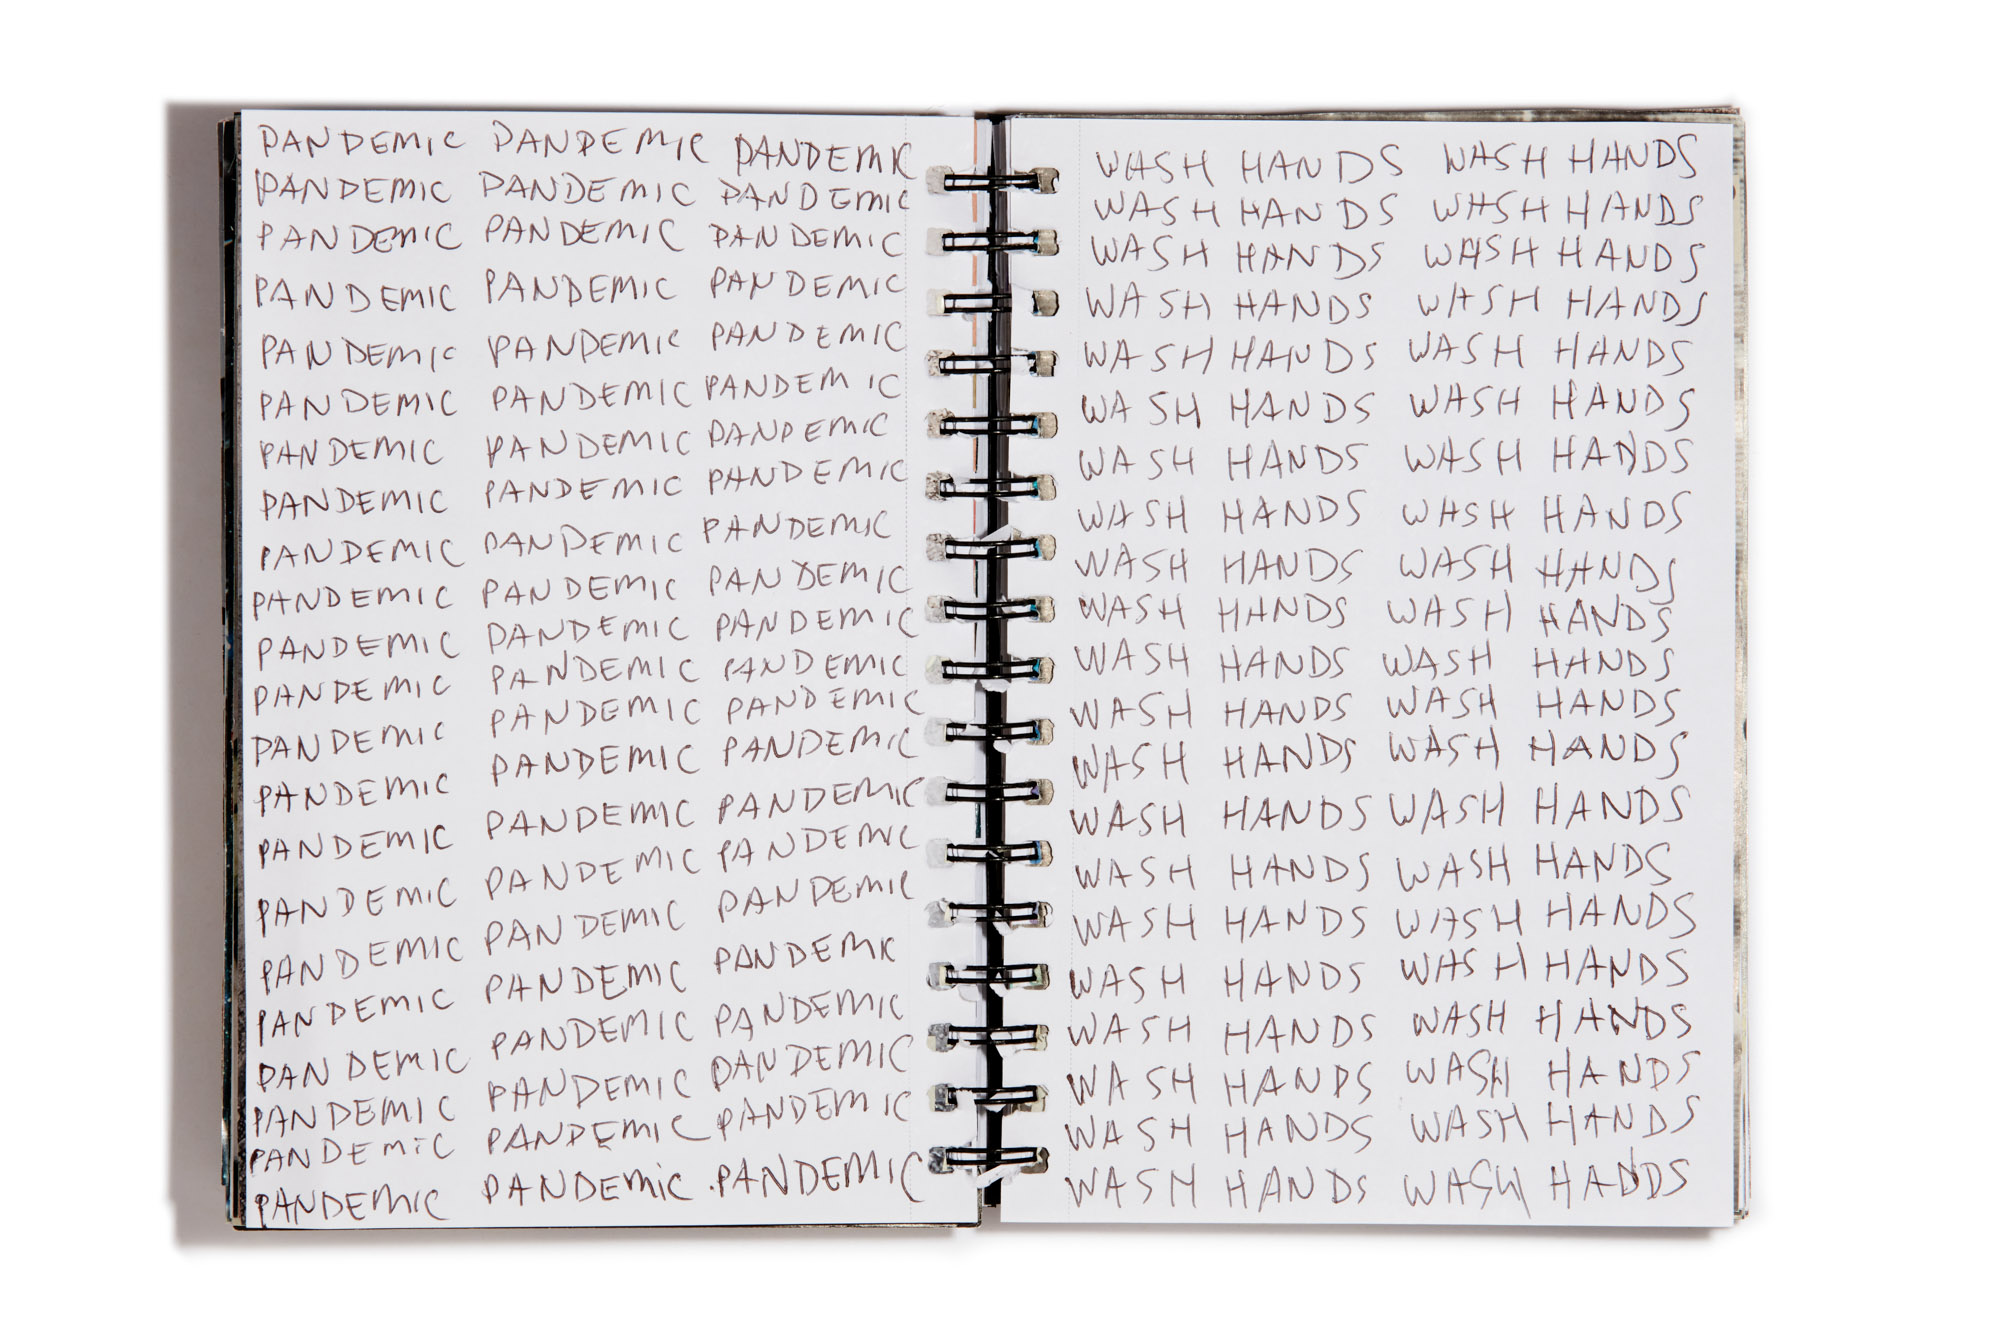 PANDEMIC PANDEMIC PANDEMIC
PANDEMIC PANDEMIC PANDEMIC
PANDEMIC PANDEMIC PANDEMIC
PANDEMIC PANDEMIC PANDEMIC
PANDEMIC PANDEMIC PANDEMIC
PANDEMIC PANDEMIC PANDEMIC
PANDEMIC PANDEMIC PANDEMIC
PANDEMIC PANDEMIC PANDEMIC
PANDEMIC PANDEMIC PANDEMIC
PANDEMIC PANDEMIC PANDEMIC
PANDEMIC PANDEMIC PANDEMIC
PANDEMIC PANDEMIC PANDEMIC
PANDEMIC PANDEMIC PANDEMIC
PANDEMIC PANDEMIC PANDEMIC
PANDEMIC PANDEMIC PANDEMIC
PANDEMIC PANDEMIC PANDEMIC
PANDEMIC PANDEMIC PANDEMIC
PANDEMIC PANDEMIC PANDEMIC
PANDEMIC PANDEMIC PANDEMIC
PANDEMIC PANDEMIC PANDEMIC
PANDEMIC PANDEMIC PANDEMIC
PANDEMIC PANDEMIC PANDEMIC
WASH HANDS WASH HANDS
WASH HANDS WASH HANDS
WASH HANDS WASH HANDS
WASH HANDS WASH HANDS
WASH HANDS WASH HANDS
WASH HANDS WASH HANDS
WASH HANDS WASH HANDS
WASH HANDS WASH HANDS
WASH HANDS WASH HANDS
WASH HANDS WASH HANDS
WASH HANDS WASH HANDS
WASH HANDS WASH HANDS
WASH HANDS WASH HANDS
WASH HANDS WASH HANDS
WASH HANDS WASH HANDS
WASH HANDS WASH HANDS
WASH HANDS WASH HANDS
WASH HANDS WASH HANDS
WASH HANDS WASH HANDS
WASH HANDS WASH HANDS
WASH HANDS WASH HANDS